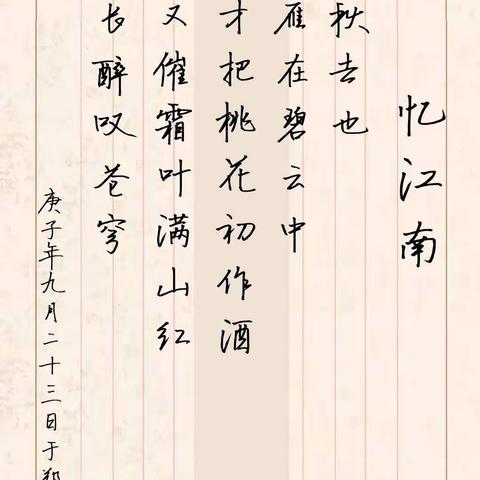 忆江南
秋去也
雁在碧云中
才把桃花初作酒
又催霜叶满山红
长醉叹苍穹
庚子年九月二十三日于郑